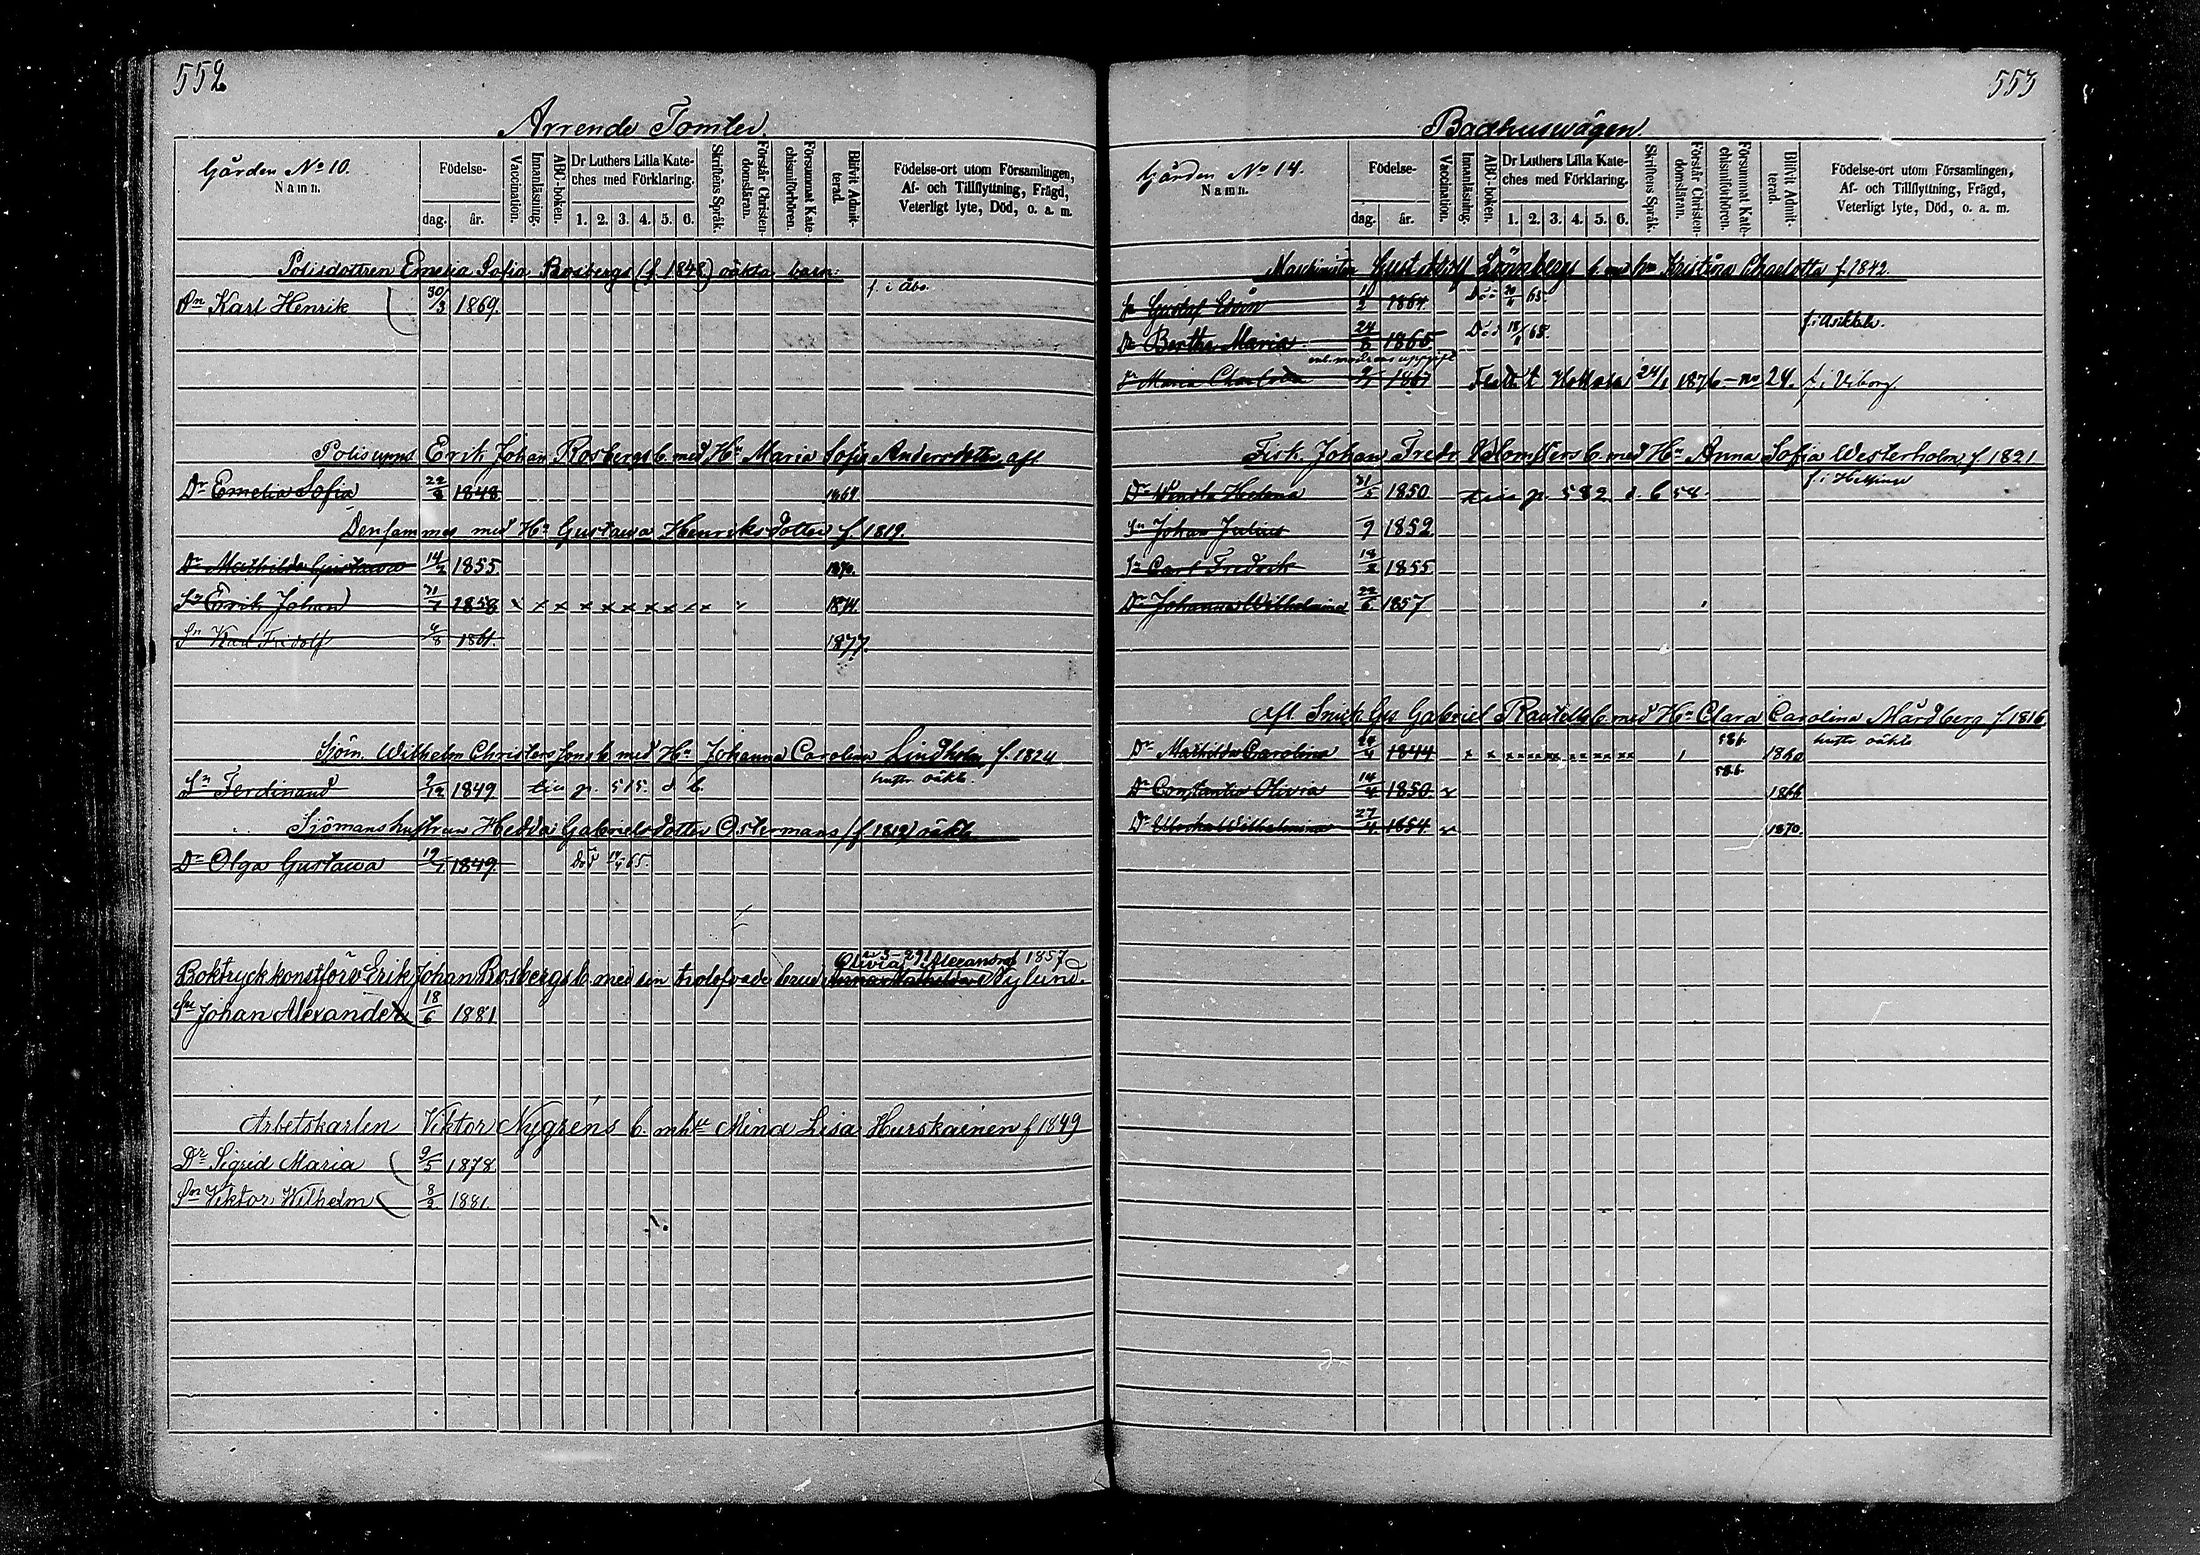 552
Arrende Tomter.
Gården No 10.
Namn.
Födelse-
dag. år.
Vaccination.
Innanläsning.
ABC-boken.
Dr Luthers Lilla Kate-
ches med Förklaring.
1. 2. 3. 4. 5. 6.
Skriftens Språk.
Förstår Christen-
domsläran.
Försummat Kate-
chismiförhören.
Blifvit Admit-
terad.
Födelse-ort utom Församlingen,
Af- och Tillflyttning, Frägd,
Veterligt lyte, Död, o. a. m.
Polisdottren Emelia Sofia Rosbergs (f. 1848) oäkta barn:
Sn Karl Henrik 30/3 1869. f. i Åbo.
Erik Johan Rosbergs b. med Hu Maria Sofia Andersdotter, aft
Dr Emelia Sofia 22/8 1848 1869
Densammes med Hu Gustawa Henriksdotter f. 1819.
Dr Mathilda Gustawa 14/2 1855 1870.
Sn Erik Johan 31/1 1858 x x x x x x x x x x 1874.
Sn Karl Fridolf 4/8 1861. 1877.
Sjöm. Wilhelm Christerssons b. med Hu Johanna Carolina Lindholm f. 1824
Sn Ferdinand 9/12 1849 p. 515. d. b.
Sjömanshustrun Hedda Gabrielsdotter Ostermans (f 1819) oäkta
Dr Olga Gustawa 19/1 1849. Död 65.
Olivia Alexandra 1857
Boktryckkonstförv. Erik Johan Rosbergs b. med sin trolofvade Nylund.
Sn Johan Alexander 18/6 1881
Arbetskarlen Viktor Nygréns b. m hu Mina Lisa Hurskainen f 1849
Dr Sigrid Maria 9/5 1878
Sn Viktor Wilhelm 8/2 1881.
553
Badhuswägen.
Gården No 14.
Namn.
Födelse-
dag. år.
Vaccination.
Innanläsning.
ABC-boken.
Dr Luthers Lilla Kate-
ches med Förklaring.
1. 2. 3. 4. 5. 6.
Skriftens Språk.
Förstår Christen-
domsläran.
Försummat Kate-
chismiförhören.
Blifvit Admit-
terad.
Födelse-ort utom Församlingen,
Af- och Tillflyttning, Frägd,
Veterligt lyte, Död, o. a. m.
Maschinisten Gust. Adolf Lönnbergs b. med hu Kristina Charlotta f. 1842.
Sn Gustaf 1864. Död 65.
Dr Bertha Maria 24/5 1865 Död 65.
enl. moderns uppgift
Maria Charlotta 24/1 1876 - no 24. f. i Viborg.
Fisk. Johan Fredr. Blomsters b. med Hu Anna Sofia Westerholm f 1821
Helena 31/5 1850 p. 582
Sn Johan Julius 9 1852
Sn Carl Fredrik 18/2 1855
Dr Johanna Wilhelmina 22/6 1857
Afl. Snick. Ges. Gabriel Rautells b. med Hu Clara Carolina Mårdberg f. 1816
Dr Mathilda Carolina 1844 x x x x x x x x x 1860
Dr Constantia Olivia 14/4 1850 x 1866
Dr Ulrika Wilhelmina 27/4 1854 x 1870.